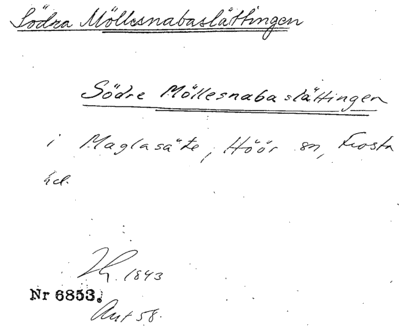 Södra Möllesnabaslåttingen
Södre Möllesnabaslåttingen
i Maglasäte, Höör sn, Frosta
hd.
1843
Nr 6853.
Aut 58.